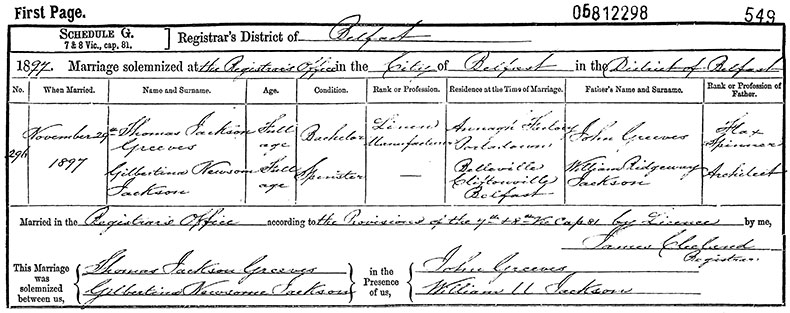 First Page. 05812298 549
SCHEDULE G.
7 & 8 Vic., cap. 81.
Registrar's District of Belfast
1897. Marriage solemnized at the Registrar's Office in the City of Belfast in the District of Belfast
No. When Married. Name and Surname. Age. Condition. Rank or Profession. Residence at the Time of Marriage. Father's Name and Surname. Rank or Profession of Father.
296
November 29th 1897
Thomas Jackson Greeves
Full age
Bachelor
Linen Manufacturer
Annagh Factory Portadown
John Greeves
Flax Spinner
Gilbertina Newsom Jackson
Full age
Spinster
—
Belleville Cliftonville Belfast
William Ridgeway Jackson
Architect
Married in the Registrar's Office according to the Provisions of the 7th & 8th Vic Cap 81 by Licence by me,
James Cleland
Registrar
This Marriage was solemnized between us,
Thomas Jackson Greeves
Gilbertina Newsome Jackson
in the Presence of us,
John Greeves
William Jackson